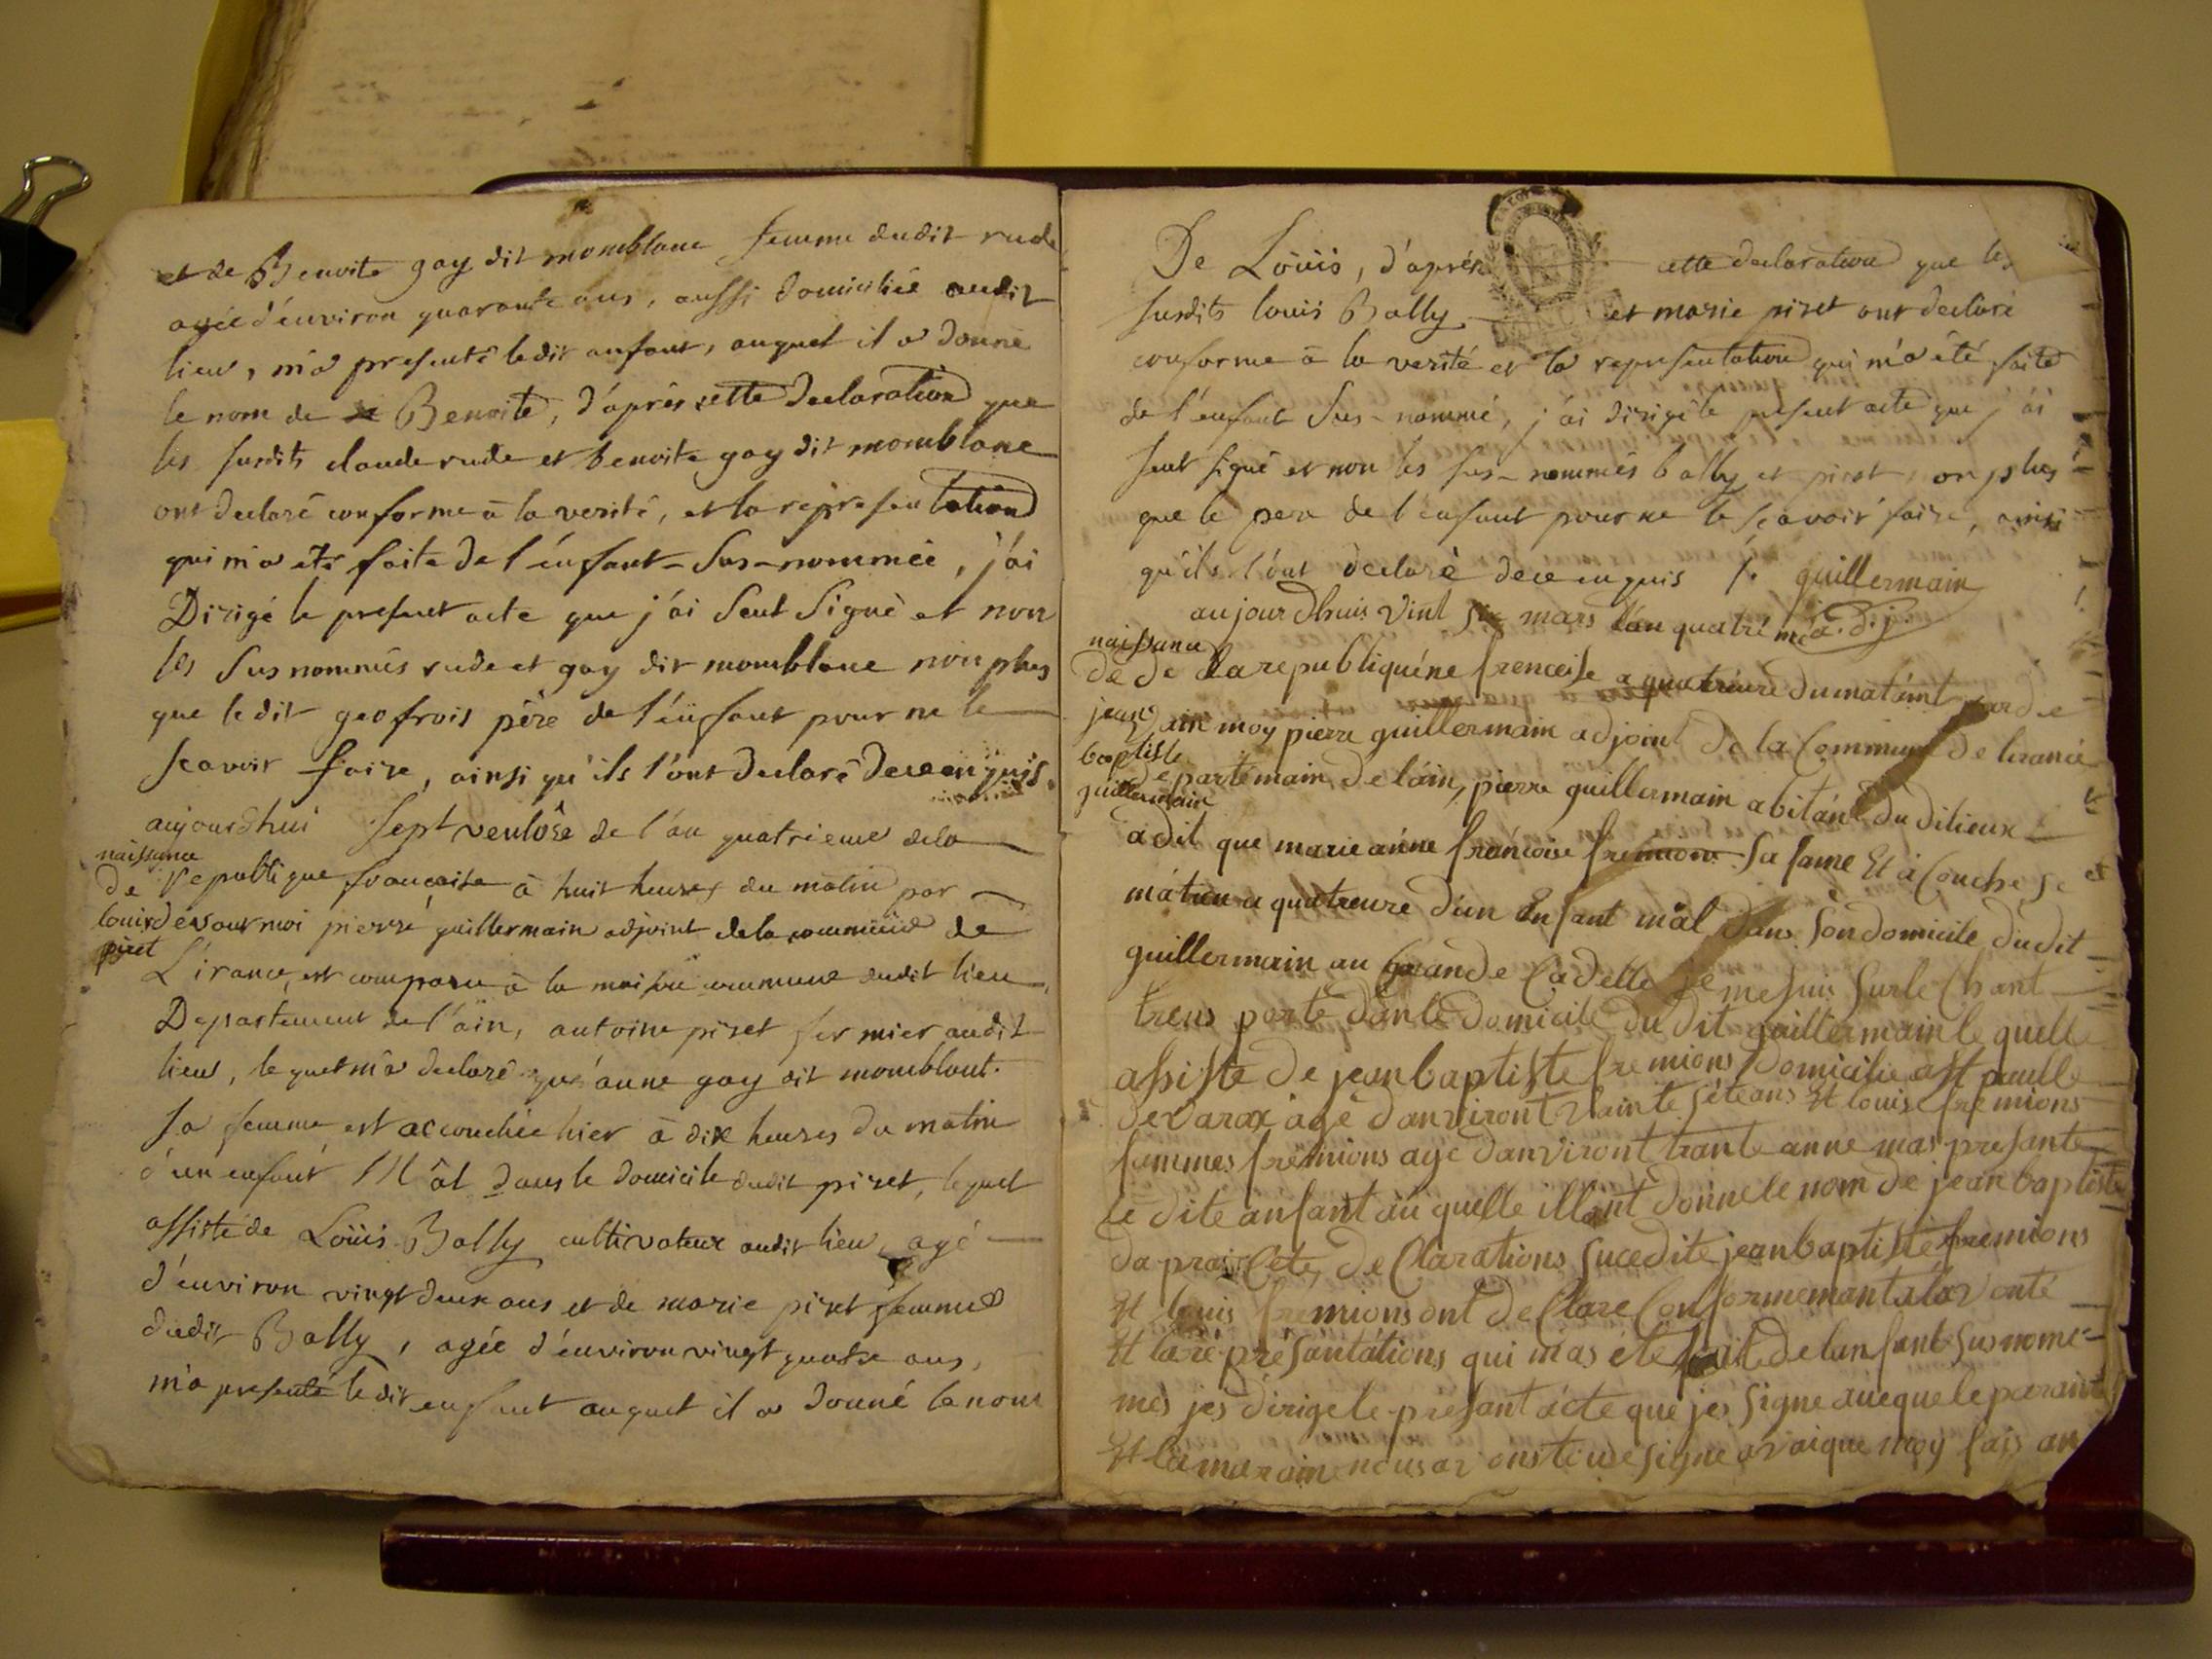 et de Benoite gay dit momblanc femme dudit rude
agée d'environ quarante ans, aussi domiciliée audit
lieu, m'a presenté ledit enfant, auquel il a donné
le nom de Benoite, d'après cette declaration que
les susdits claude rude et benoite gay dit momblanc
ont declaré conforme à la verité, et la representation
qui m'a eté faite de l'enfant - Sus-nommée, j'ai
Dirigé le present acte que j'ai Seul Signé et non
les Susnommés rude et gay dit momblanc non plus
que le dit geofrois père de l'enfant pour ne le
scavoir faire, ainsi qu'ils l'ont declaré de ce enquis.
aujourdhui Sept ventôse de l'an quatrieme de la
naissance
de Republique françaite à huit heures du matin par
louis devant moi pierre guillermain adjoint de la commune de
piret
L'irance, est comparu à la maison commune dudit lieu,
Departement de l'ain, antoine piret fermier audit
lieu, lequel m'a declaré qu'anne gay dit momblant.
sa femme est accouchée hier à dix heures du matin
d'un enfant Mâl dans le domicile dudit piret, lequel
assisté de Loüis Bally cultivateur audit lieu, agé
d'environ vingt deux ans et de marie piret femme
dudit Bally, agée d'environ vingt quatre ans,
m'a presenté le dit enfant auquel il a donné le nom
De Loüis, d'après cette declaration que les
susdits louis Bally et marie piret ont declaré
conforme à la verité et la representation qui m'a été faite
de l'enfant Sus-nommé, j'ai dirigé le present acte que j'ai
seul signé et non les sus-nommés bally et piret, on plus
que le pere de l'enfant pour ne le sçavoir faire, ainsi
qu'ils l'ont declaré de ce enquis /. guillermain
a.d.j.
aujourdhuis vint six mars l'an quatrième
naissance
de de la republiquéne frenceise a quatreure du matimt pard e
jean
ain moy pierre guillermain adjoint de la Commune de liranci
baptiste
departemain de láin, pierre guillermain abitánt du ditieux
guillermain
a dit que marie anne fráncoise fremion sa fame Et a Couche se
mátien a quatreure d'un Enfant mâl dans son domicile du dit
guillermain au grande Cadelle je me suis surle Chant
trens porté dan le domicile du dit guillermain le quelle
assiste de jean baptiste fremions domicilie a st paulle
de Varax agé danviront vainte séte ans Et louise fremions
fammes fremions agé danviront trante anne mas presante
le dite anfant au quelle illont donne le nom de jean baptiste
da prai Cete de Clarations sucedite jean baptiste fremions
Et louis fremions ont de Clare Conformemant a la vérité
Et la ré présantátions qui mas eté fait de lanfant susnome
més jes dirige le présant ácte que jes signe avequele parain
Et la marain nous signe avaique moy fais an